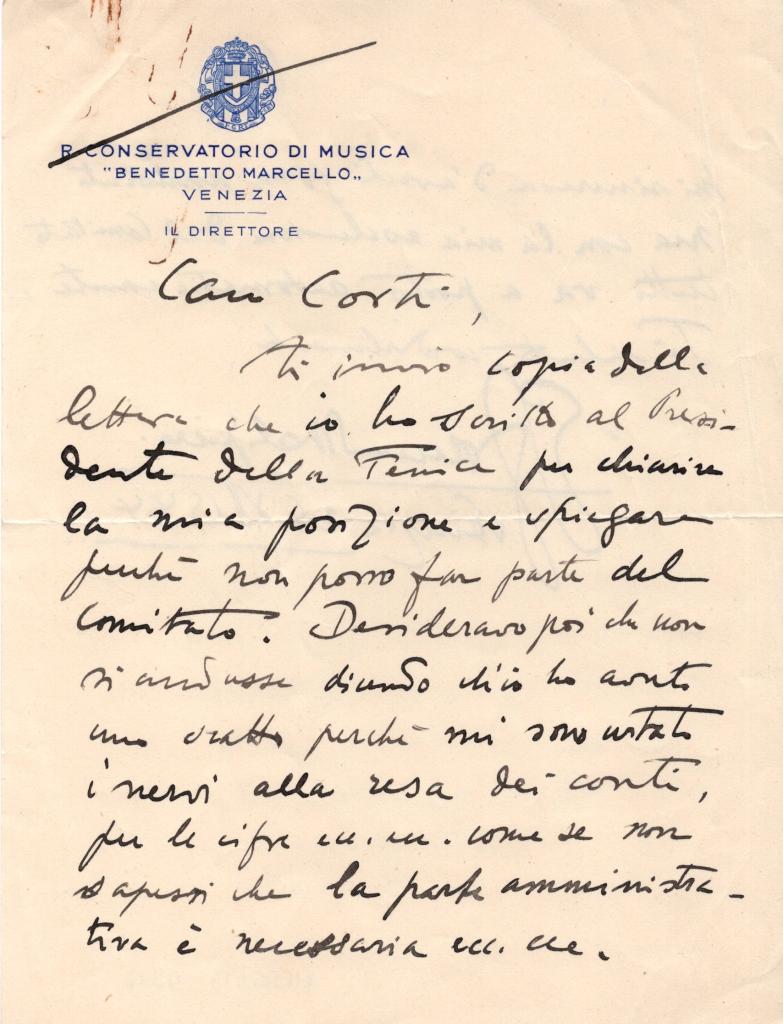 R. CONSERVATORIO DI MUSICA
"BENEDETTO MARCELLO„
VENEZIA
IL DIRETTORE
Caro Corti,
ti invio copia della
lettera che io ho scritto al Presi-
dente della Fenice per chiarire
la mia posizione e spiegare
perché non posso far parte del
Comitato. Desideravo poi che non
si andasse dicendo ch'io ho avuto
uno scatto perché mi sono urtato
i nervi alla resa dei conti,
per le cifre ecc. ecc. come se non
sapessi che la parte amministra-
tiva è necessaria ecc. ecc.